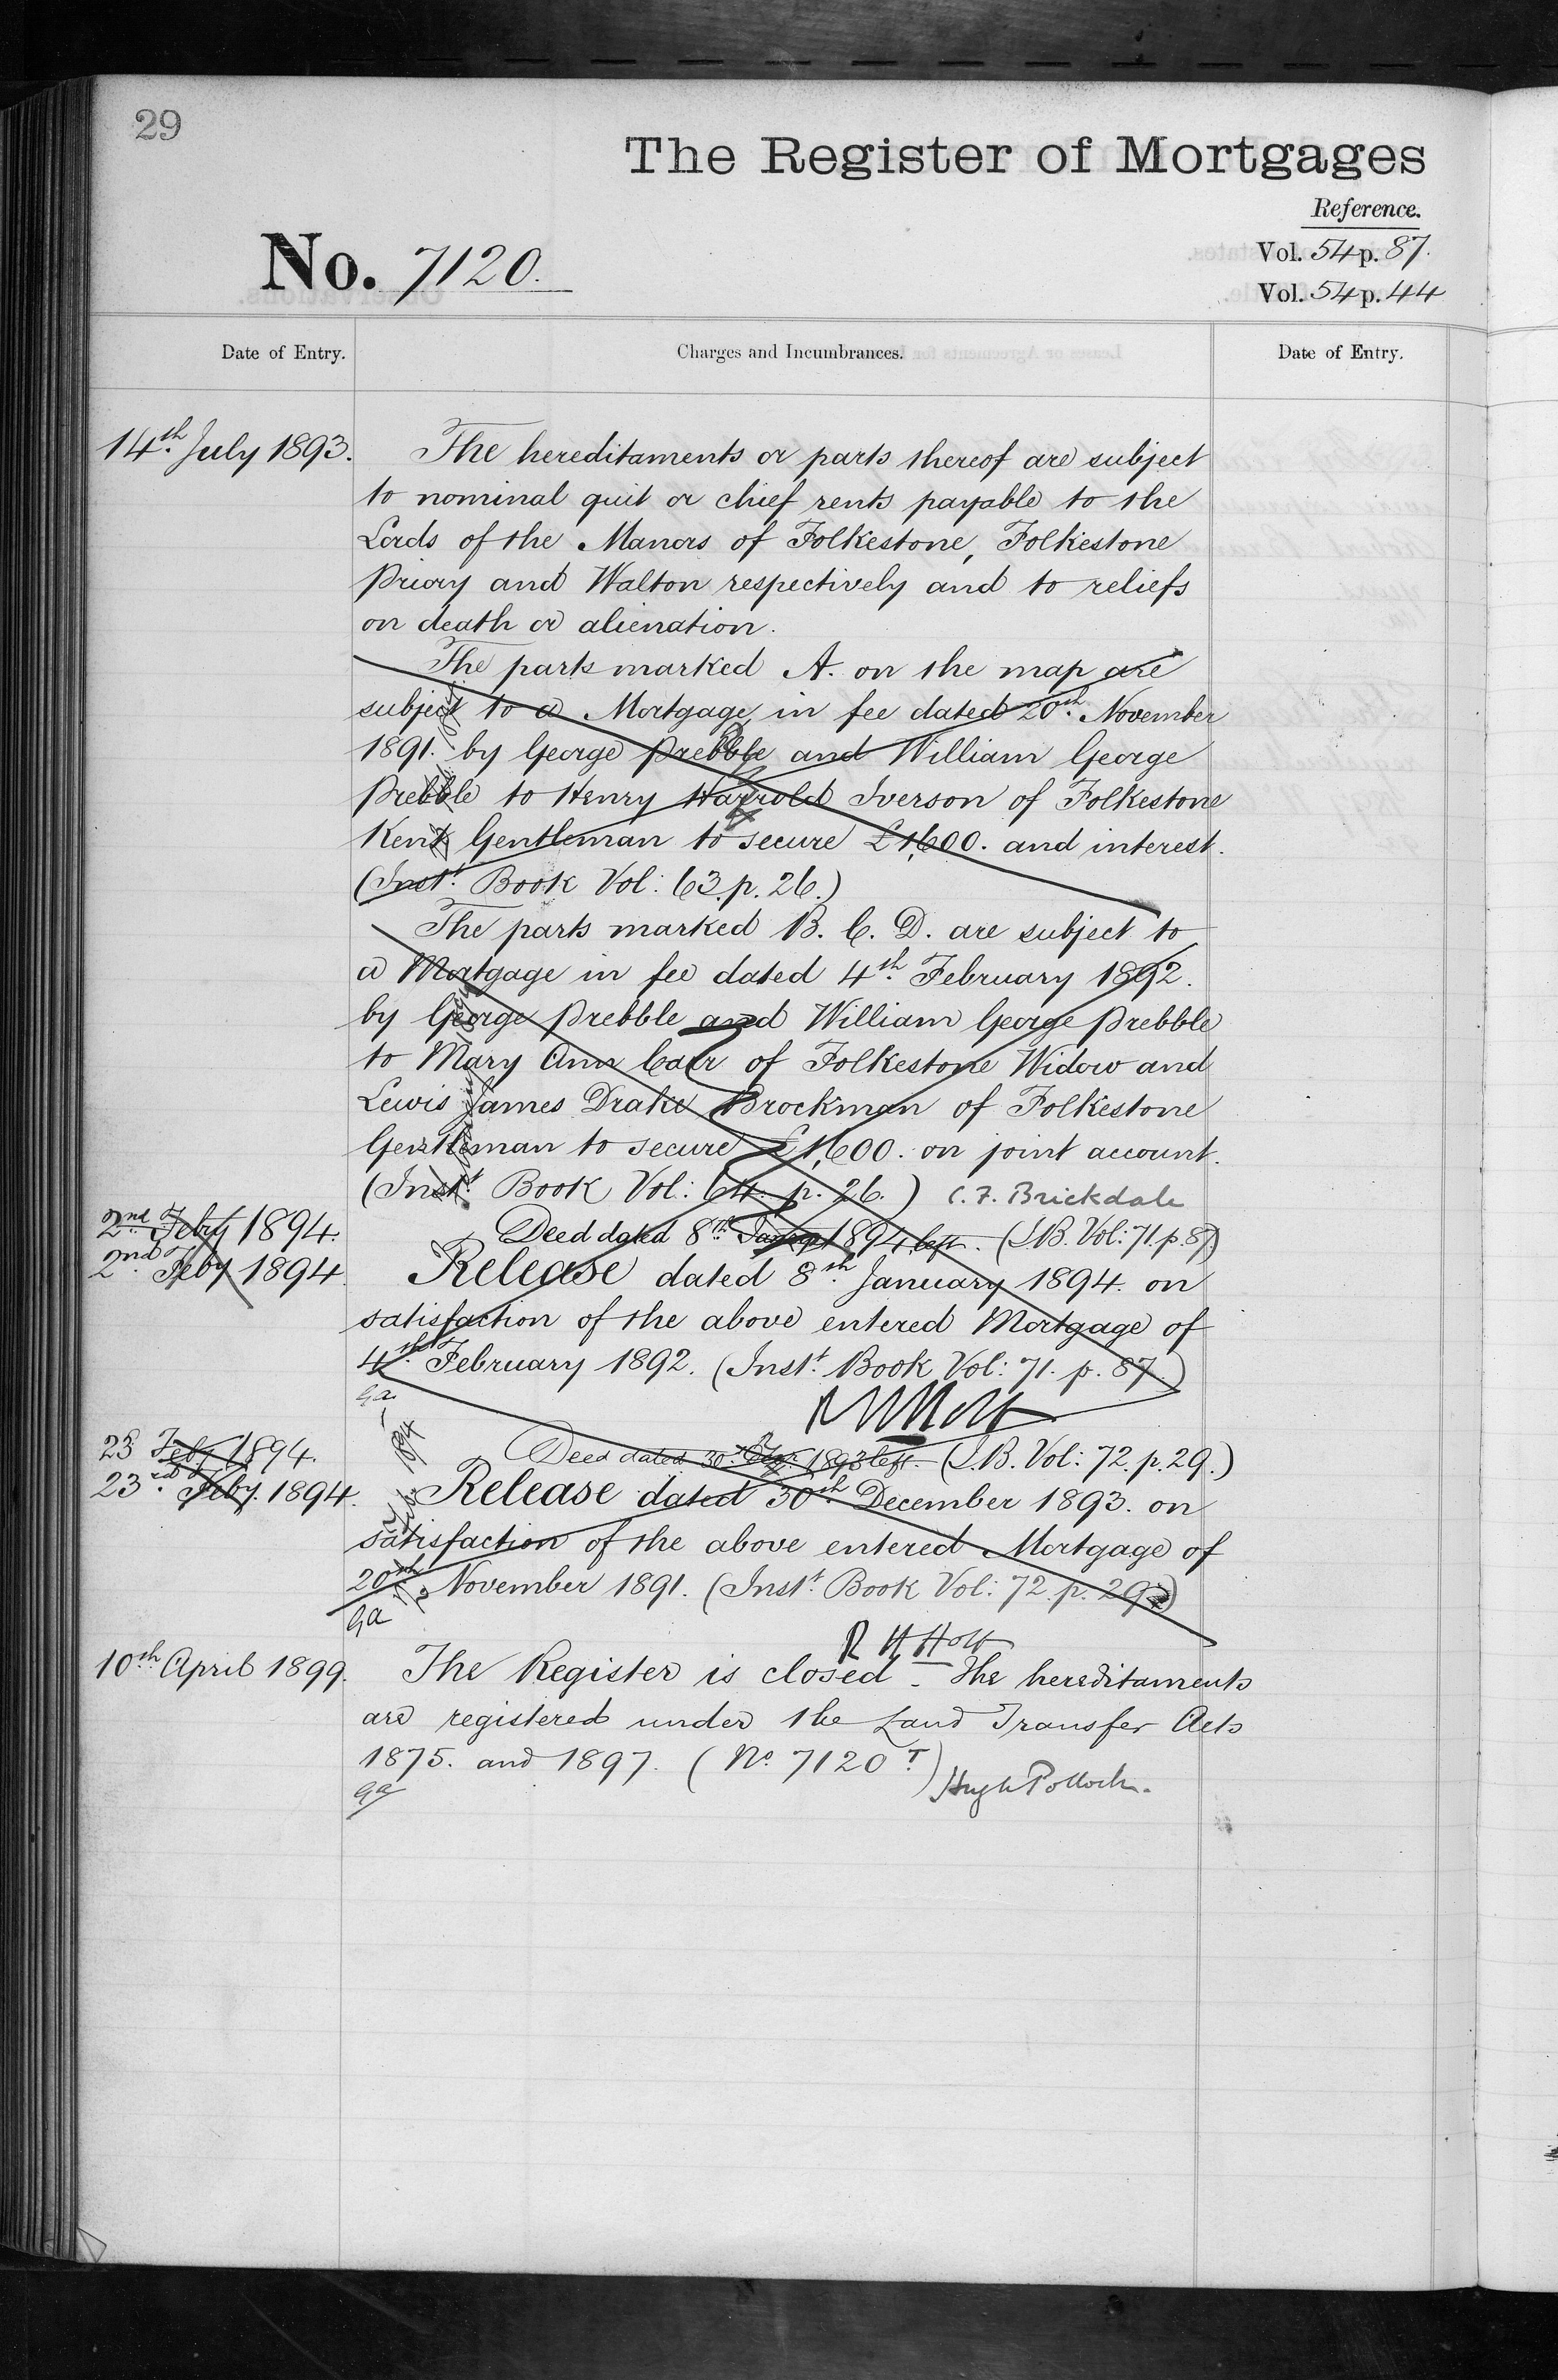 29
The Register of Mortgages
Reference.
No. 7120.
Vol. 54 p. 87.
Vol. 54 p. 44
Date of Entry.
Charges and Incumbrances.
Date of Entry.
14th July 1893.
The hereditaments or parts thereof are subject
to nominal quit or chief rents payable to the
Lords of the Manors of Folkestone, Folkestone
Priory and Walton respectively and to reliefs
on death or alienation.
The parts marked A. on the map are
subject to a Mortgage in fee dated 20th November
1891. by George Prebble and William George
Prebble to Henry Harrold Iverson of Folkestone
Kent Gentleman to secure £1,600. and interest.
(Inst. Book Vol: 63. p. 26.)
The parts marked B. C. D. are subject to
a Mortgage in fee dated 4th February 1892.
by George Prebble and William George Prebble
to Mary Ann Carr of Folkestone Widow and
Lewis James Drake Brockman of Folkestone
Gentleman to secure £1,600. on joint account.
(Inst. Book Vol: 64. p. 26.) C. F. Brickdale
2nd Feby 1894.
Deed dated 8th January 1894 left. (I.B. Vol: 71. p. 87)
2nd Feby 1894
Release dated 8th January 1894. on
satisfaction of the above entered Mortgage of
4th February 1892. (Inst. Book Vol: 71. p. 87.)
ga
R H Holt
23 Feby 1894.
Deed dated 30th Dec. 1893 left (I.B. Vol: 72. p. 29.)
23rd Feby. 1894.
Release dated 30th December 1893. on
satisfaction of the above entered Mortgage of
20th November 1891. (Inst. Book Vol: 72. p. 29.)
ga
R H Holt
10th April 1899.
The Register is closed. The hereditaments
are registered under the Land Transfer Acts
1875. and 1897. (No. 7120 T)
ga
Hugh Pollock.